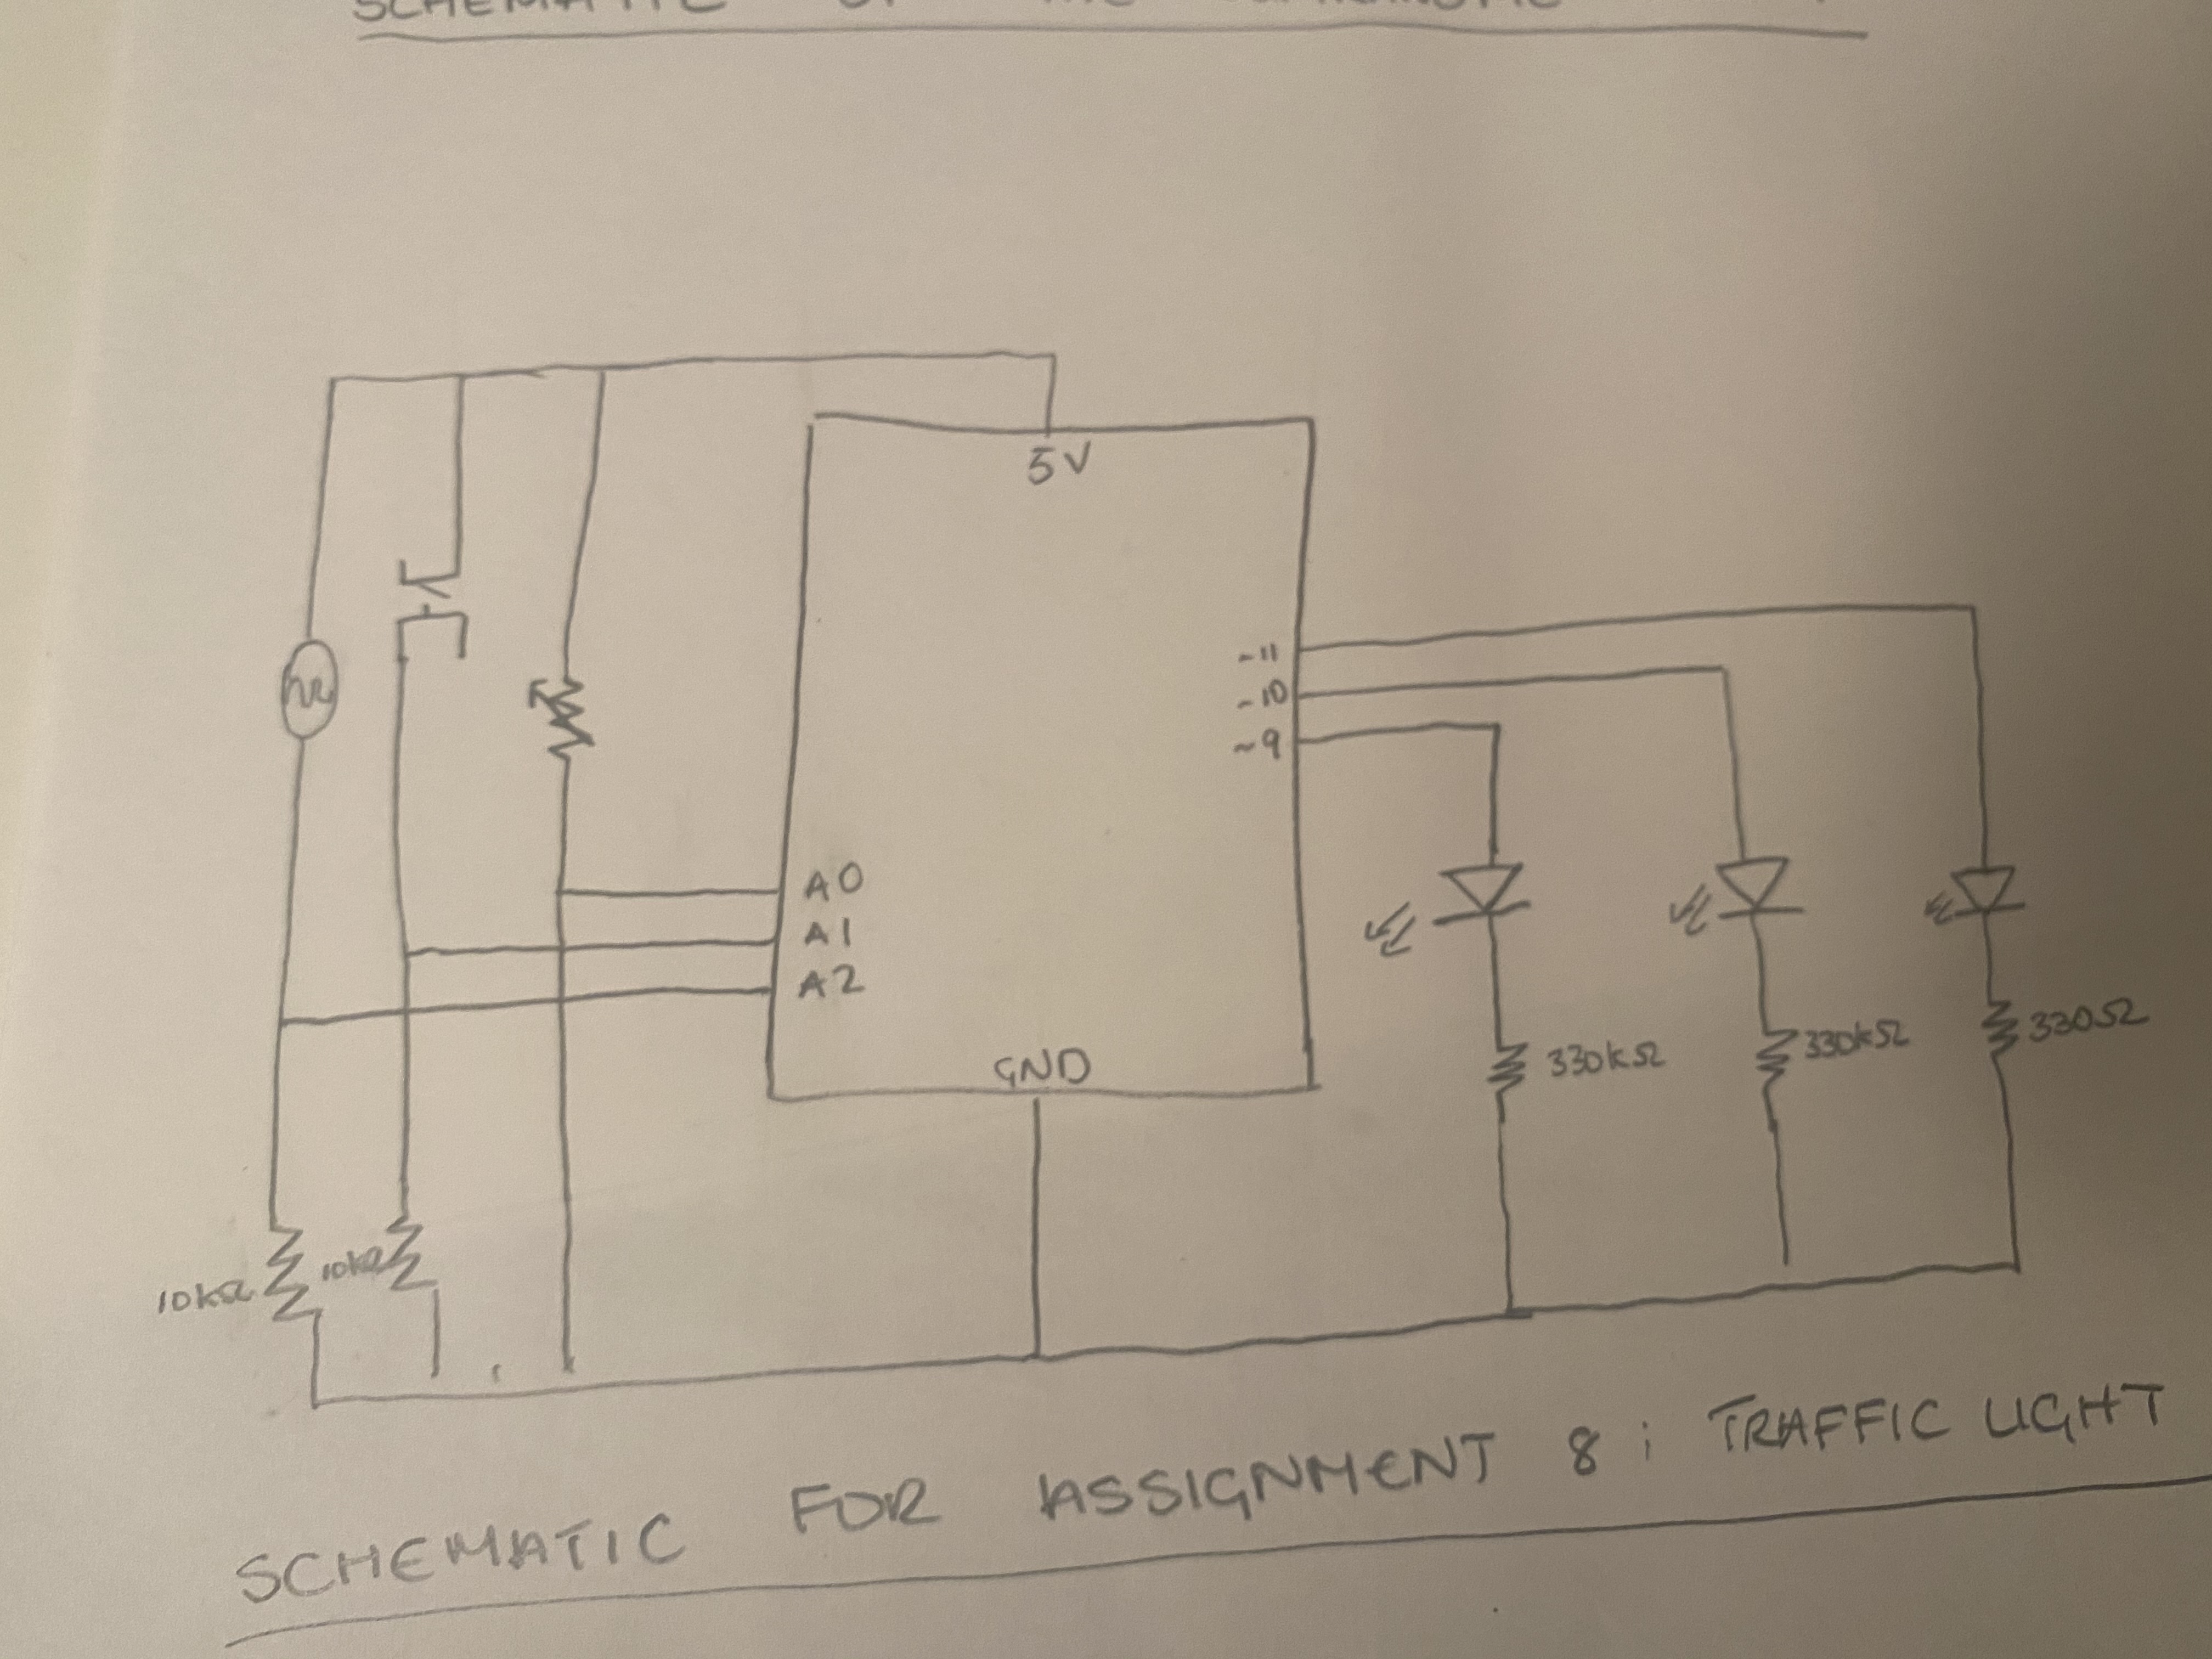 SCHEMATIC
5V
~11
~10
~9
A0
A1
A2
GND
330kΩ
330kΩ
330Ω
10kΩ
10kΩ
SCHEMATIC FOR ASSIGNMENT 8; TRAFFIC LIGHT